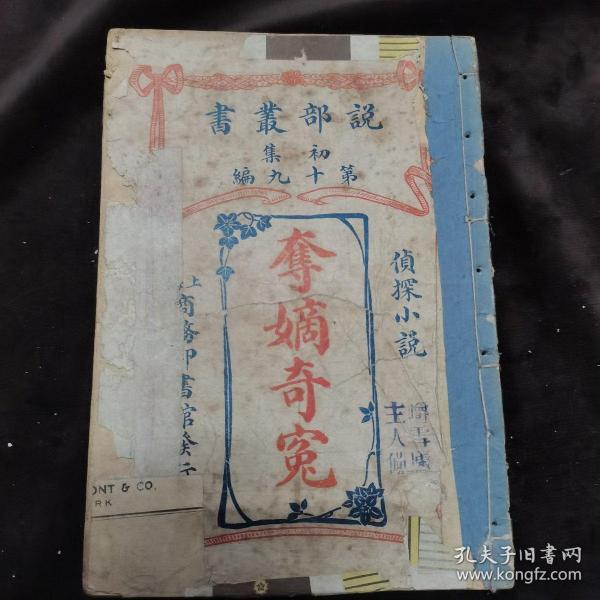 説部叢書
初集
第十九編
偵探小説
奪嫡奇冤
上
商務印書館發行
主人
ONT & CO.
RK
孔夫子旧书网
www.kongfz.com